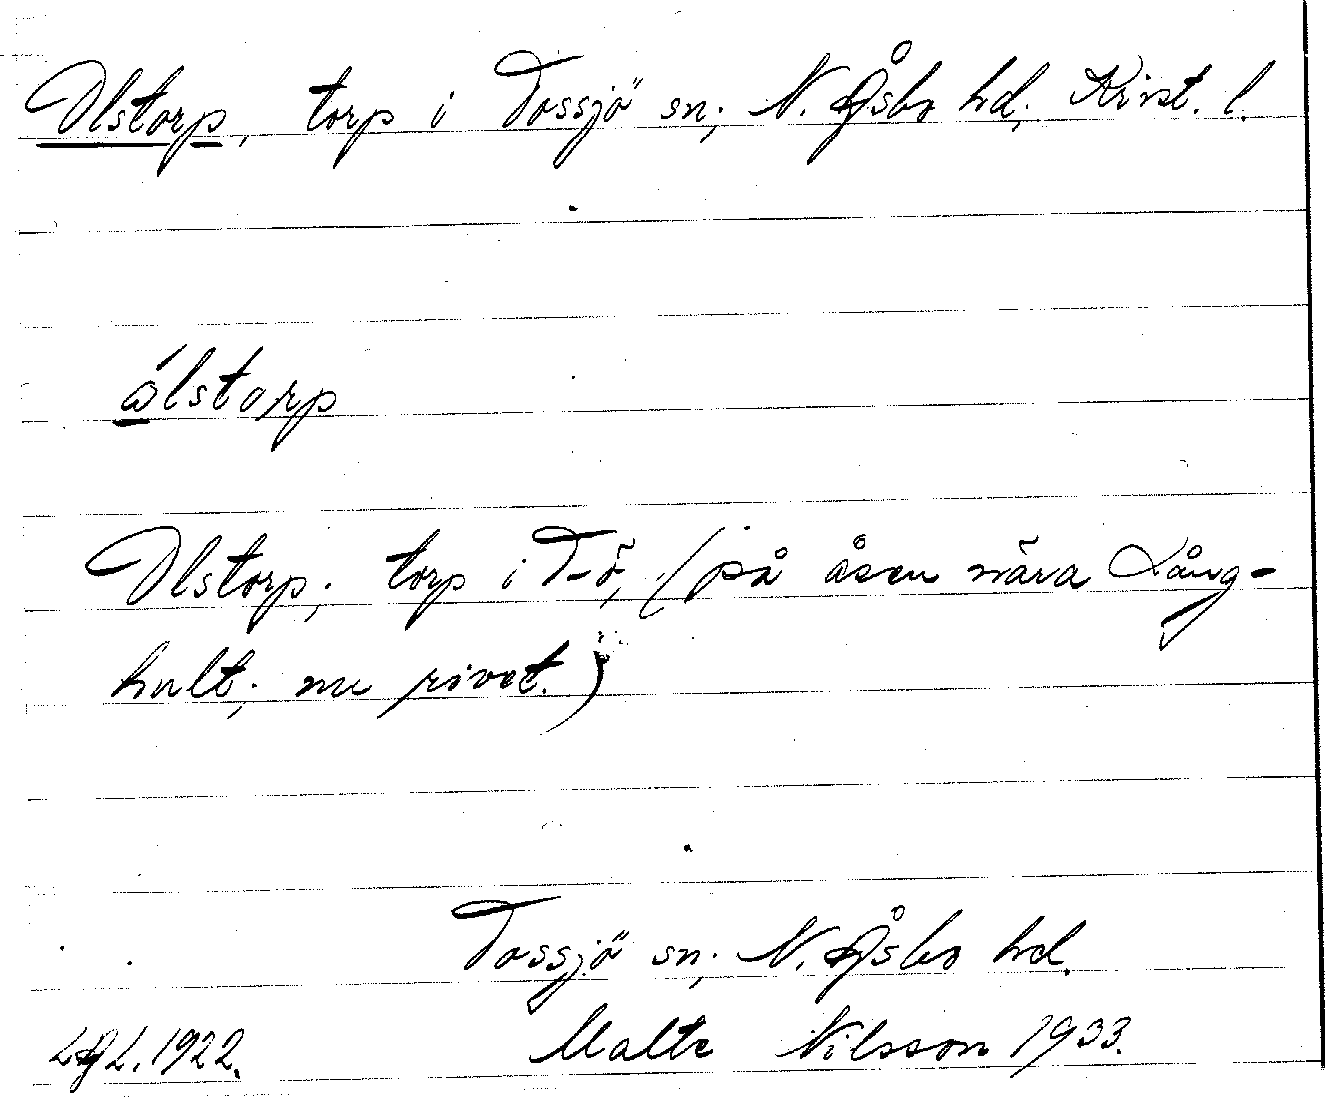 Olstorp, torp i Tossjö sn; N. Åsbo hd; Krist. l.
ólstorp
Olstorp; torp i T-ö, (på åsen nära Lång-
hult; nu rivet.)
Tossjö sn; N. Åsbo hd.
LAL. 1922. Malte Nilsson 1933.